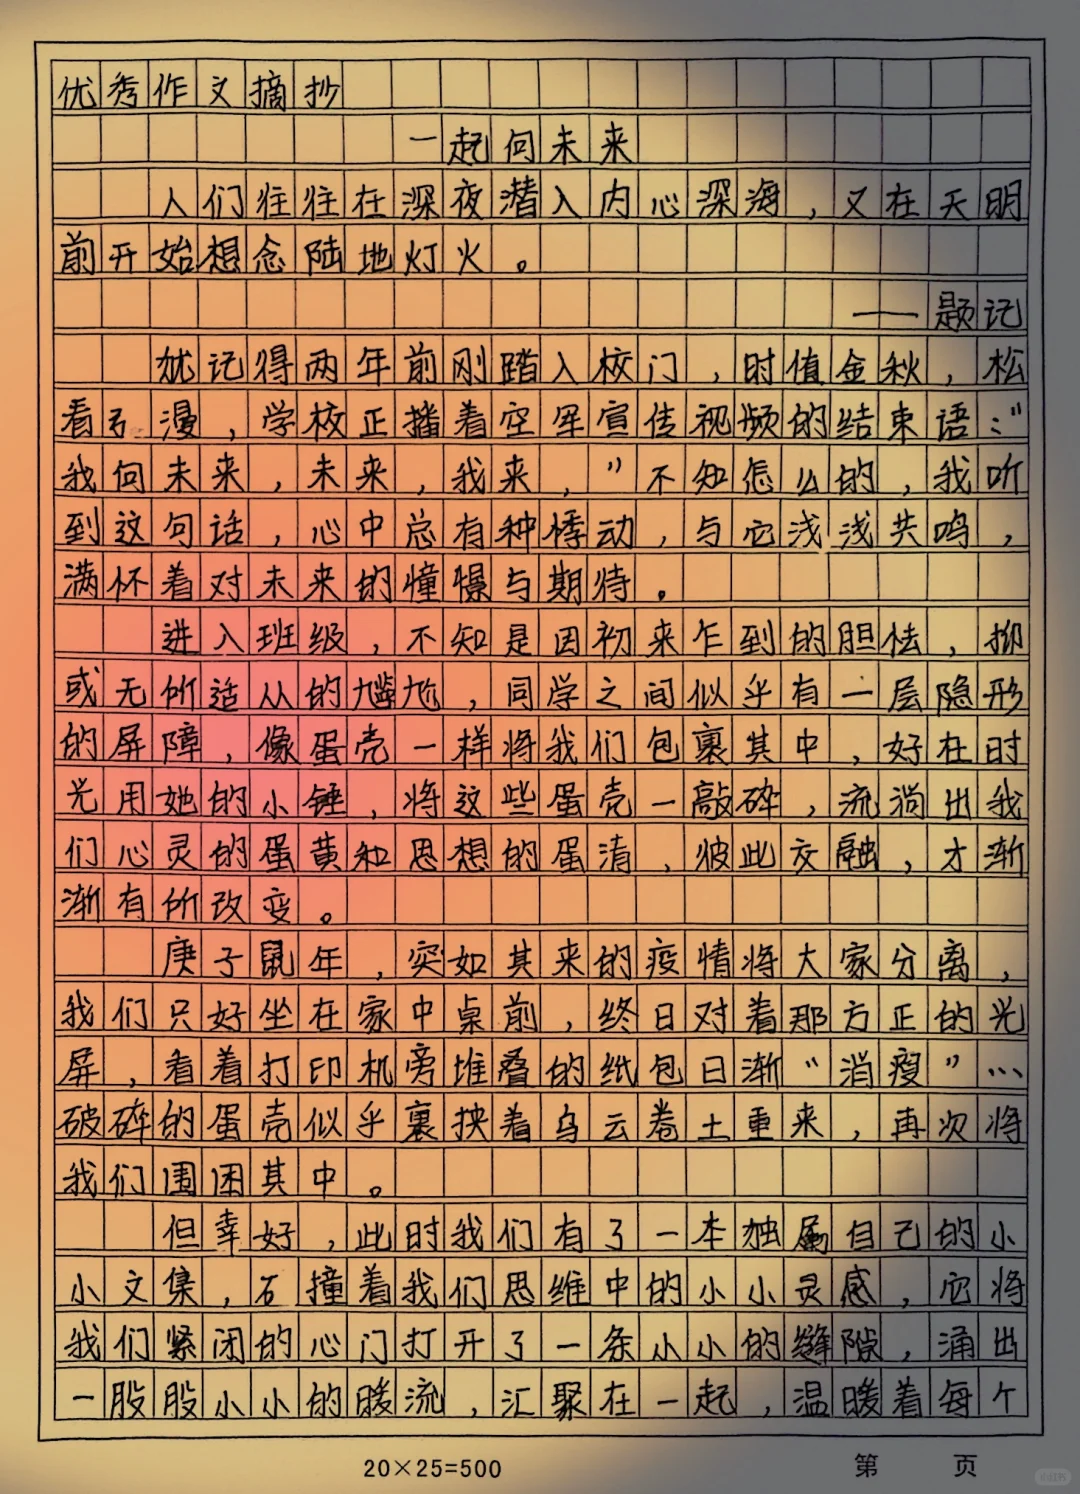 优秀作文摘抄
一起向未来
人们往往在深夜潜入内心深海，又在天明
前开始想念陆地灯火。
——题记
犹记得两年前刚踏入校门，时值金秋，松
看弓漫，学校正播着空军宣传视频的结束语：“
我向未来，未来，我来，”不知怎么的，我听
到这句话，心中总有种悸动，与它浅浅共鸣，
满怀着对未来的憧憬与期待。
进入班级，不知是因初来乍到的胆怯，抑
或无所适从的尴尬，同学之间似乎有一层隐形
的屏障，像蛋壳一样将我们包裹其中，好在时
光用她的小锤，将这些蛋壳一敲碎，流淌出我
们心灵的蛋黄和思想的蛋清，彼此交融，才渐
渐有所改变。
庚子鼠年，突如其来的疫情将大家分离，
我们只好坐在家中桌前，终日对着那方正的光
屏，看着打印机旁堆叠的纸包日渐“消瘦”…
破碎的蛋壳似乎裹挟着乌云卷土重来，再次将
我们围困其中。
但幸好，此时我们有了一本独属自己的小
小文集，石撞着我们思维中的小小灵感，它将
我们紧闭的心门打开了一条小小的缝隙，涌出
一股股小小的暖流，汇聚在一起，温暖着每个
20×25=500
第 页